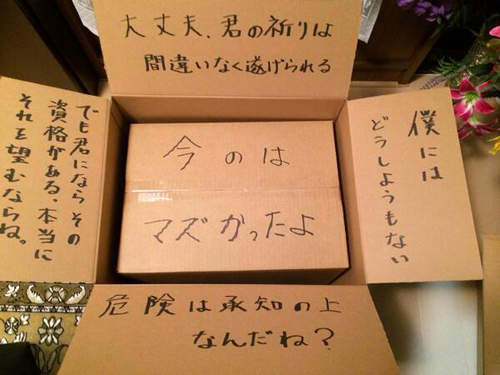 大丈夫、君の祈りは
間違いなく遂げられる
僕には
どうしようもない
でも君にならその
資格がある、本当に
それを望むならね。
今のは
マズかったよ
危険は承知の上
なんだね?